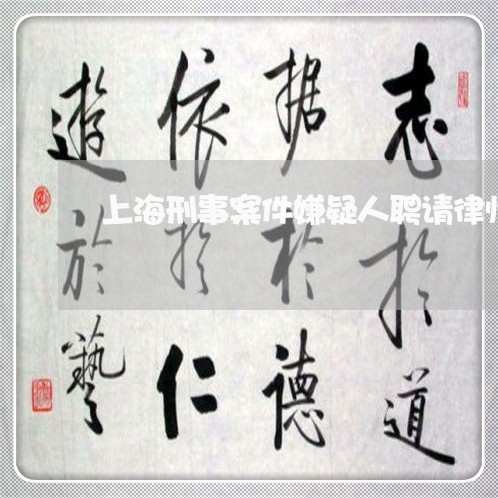 志於道
据於德
依於仁
遊於藝
上海刑事案件嫌疑人聘请律